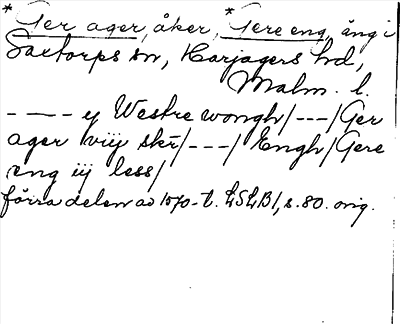 * Ger ager, åker, * Gere eng, äng i
Saxtorps sn, Harjagers hd,
Malm. l.
- - - - y Westre wongh/---/Ger
ager viij skr/---/Engh/Gere
eng iij less/
förra delen av 1570-t. LSLB1, s. 80. orig.